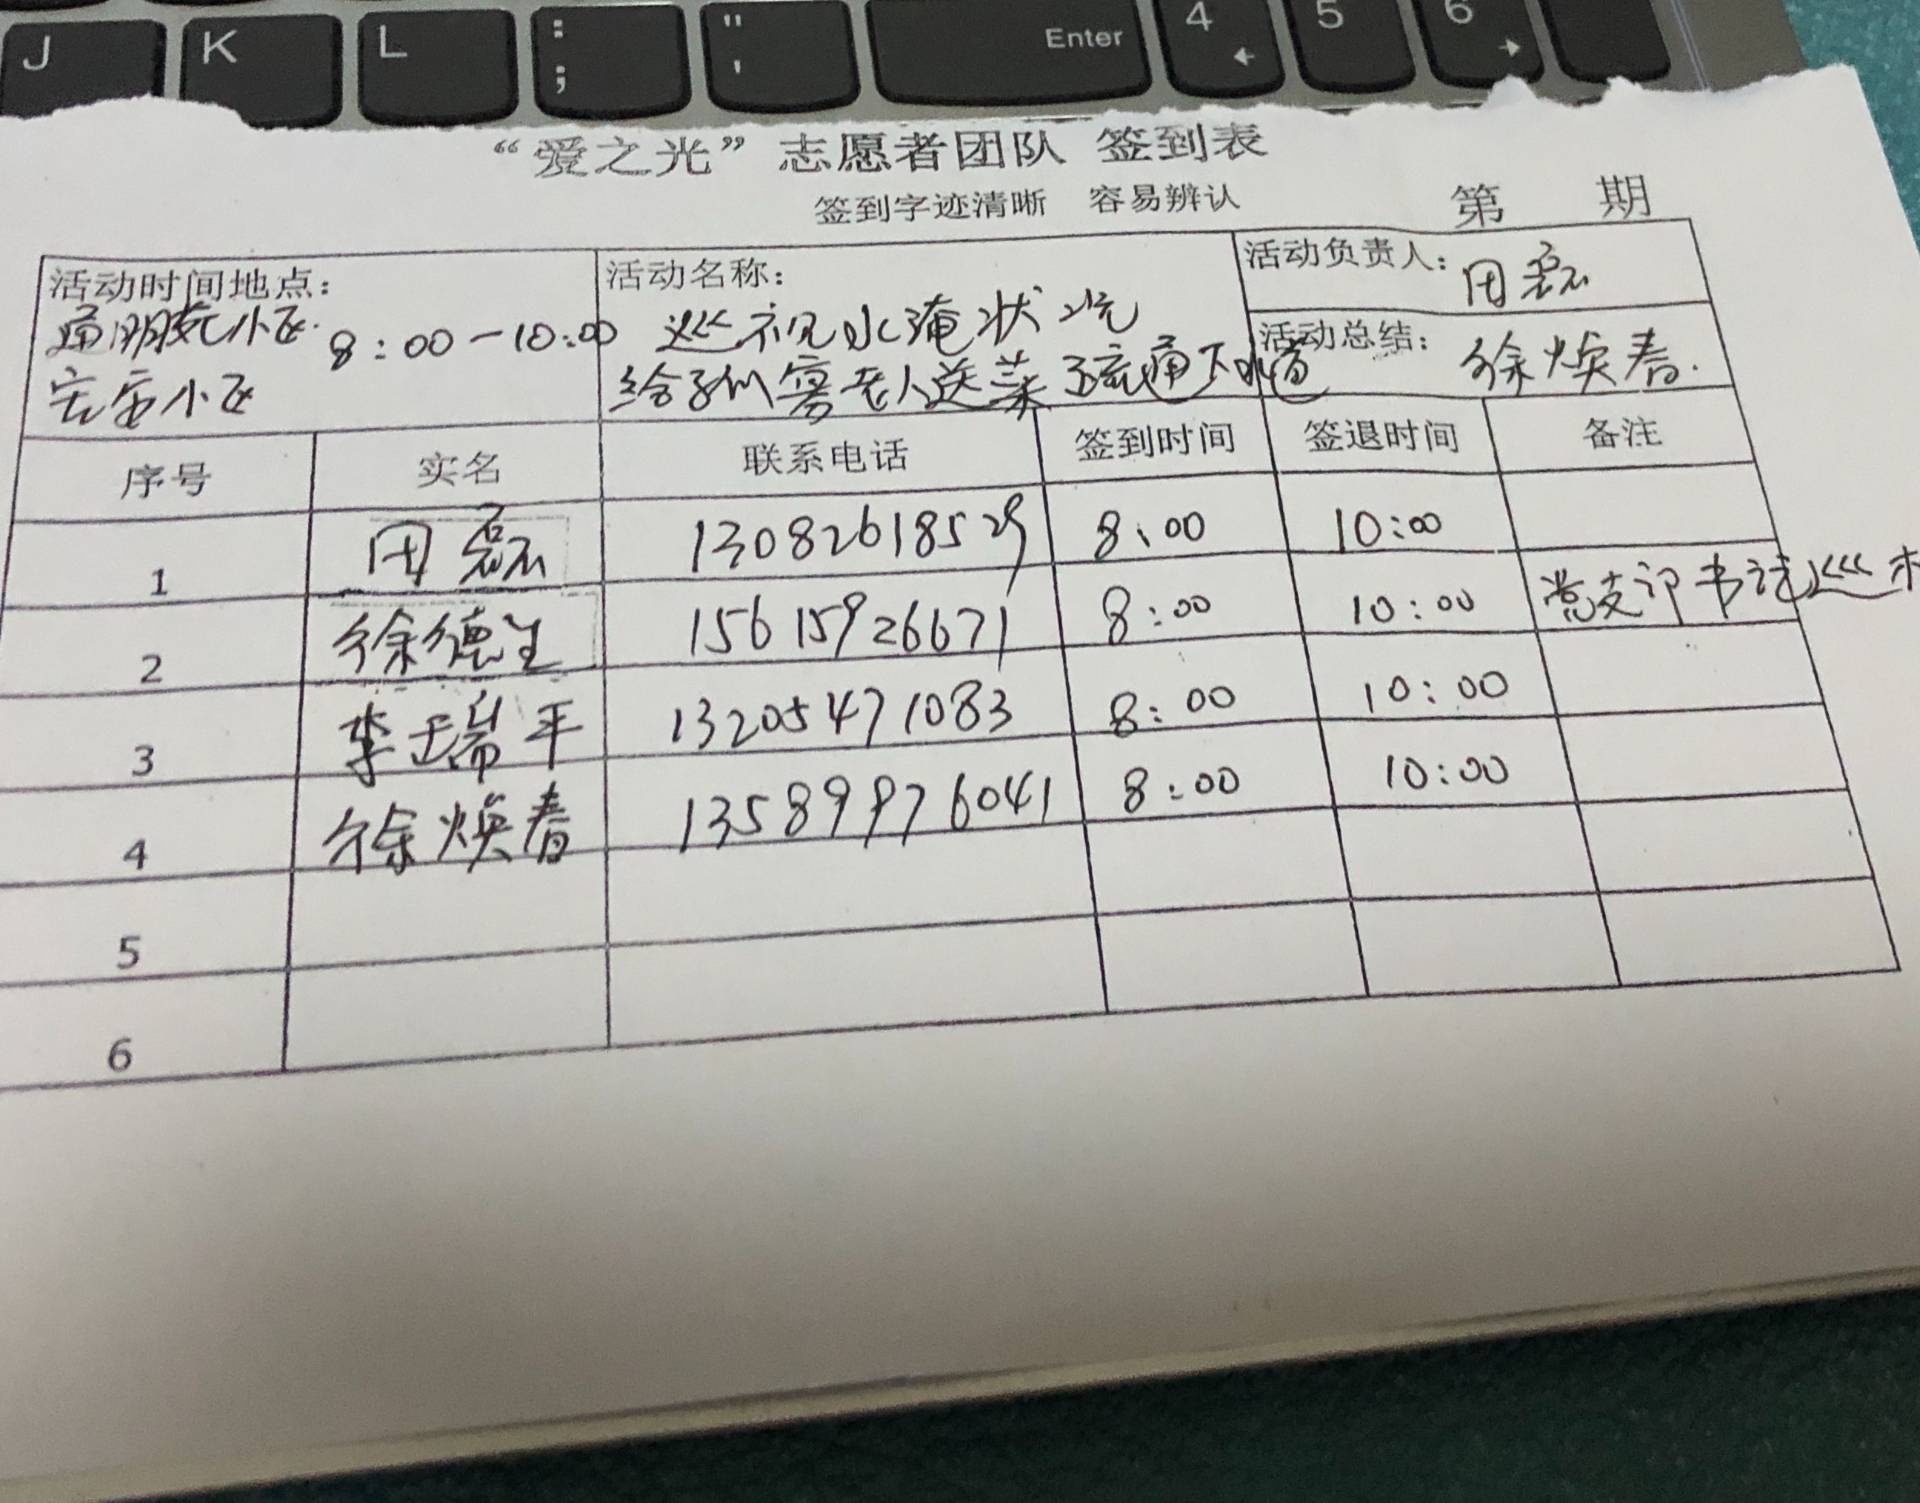 J K L : ; " ' Enter 4 5 6
“爱之光”志愿者团队 签到表
签到字迹清晰 容易辨认
第 期
活动时间地点：
小区 8：00－10：00
宏安小区
活动名称：
巡视水淹状况
给孤寡老人送菜 疏通下水道
活动负责人：田磊
活动总结：徐焕春.
序号 实名 联系电话 签到时间 签退时间 备注
1 田磊 13082618529 8:00 10:00
2 徐德生 15615926671 8:00 10:00 党支部书记巡
3 李瑞平 13205471083 8:00 10:00
4 徐焕春 13589976041 8:00 10:00
5
6